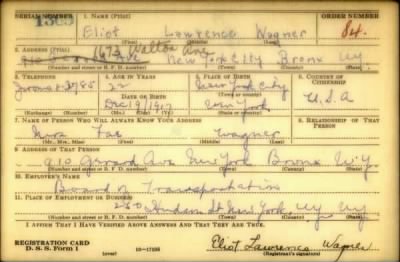 SERIAL NUMBER 1. NAME (Print) ORDER NUMBER
Eliot Lawrence Wagner 84.
(First) (Middle) (Last)
2. ADDRESS (Print)
1673 Walton Ave New York City Bronx N.Y.
(Number and street or R. F. D. number) (Town) (County) (State)
3. TELEPHONE 4. AGE IN YEARS 5. PLACE OF BIRTH 6. COUNTRY OF CITIZENSHIP
22 New York City
DATE OF BIRTH (Town or county)
Dec 19 1917 New York U.S.A
(Exchange) (Number) (Mo.) (Day) (Yr.) (State or country)
7. NAME OF PERSON WHO WILL ALWAYS KNOW YOUR ADDRESS 8. RELATIONSHIP OF THAT PERSON
Mrs Fae Wagner
(Mr., Mrs., Miss) (First) (Middle) (Last)
9. ADDRESS OF THAT PERSON
910 Gerard Ave New York Bronx N.Y.
(Number and street or R. F. D. number) (Town) (County) (State)
10. EMPLOYER'S NAME
Board of Transportation
11. PLACE OF EMPLOYMENT OR BUSINESS
250 Hudson St New York, NY NY
(Number and street or R. F. D. number) (Town) (County) (State)
I AFFIRM THAT I HAVE VERIFIED ABOVE ANSWERS AND THAT THEY ARE TRUE.
REGISTRATION CARD
D. S. S. Form 1 (over) Eliot Lawrence Wagner
(Registrant's signature)